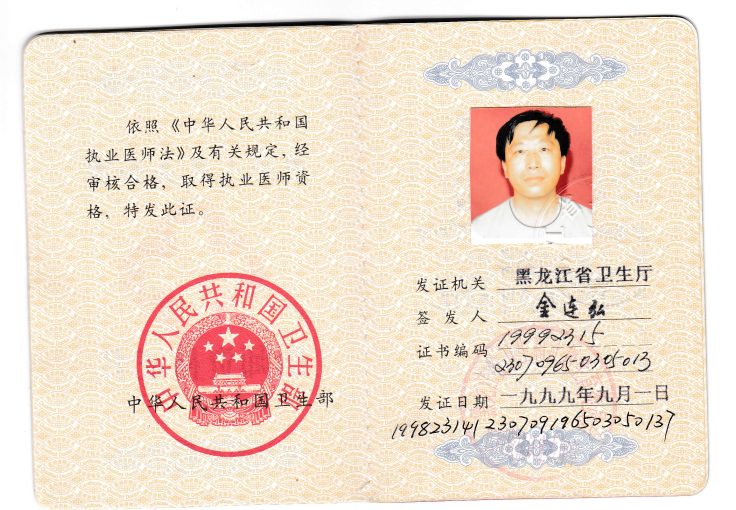 依照《中华人民共和国
执业医师法》及有关规定,经
审核合格,取得执业医师资
格,特发此证。
中华人民共和国卫生部
中华人民共和国卫生部
发证机关 黑龙江省卫生厅
签发人 金连弘
证书编码 19992315
230709650305013
发证日期 一九九九年九月一日
199823141230709196503050137